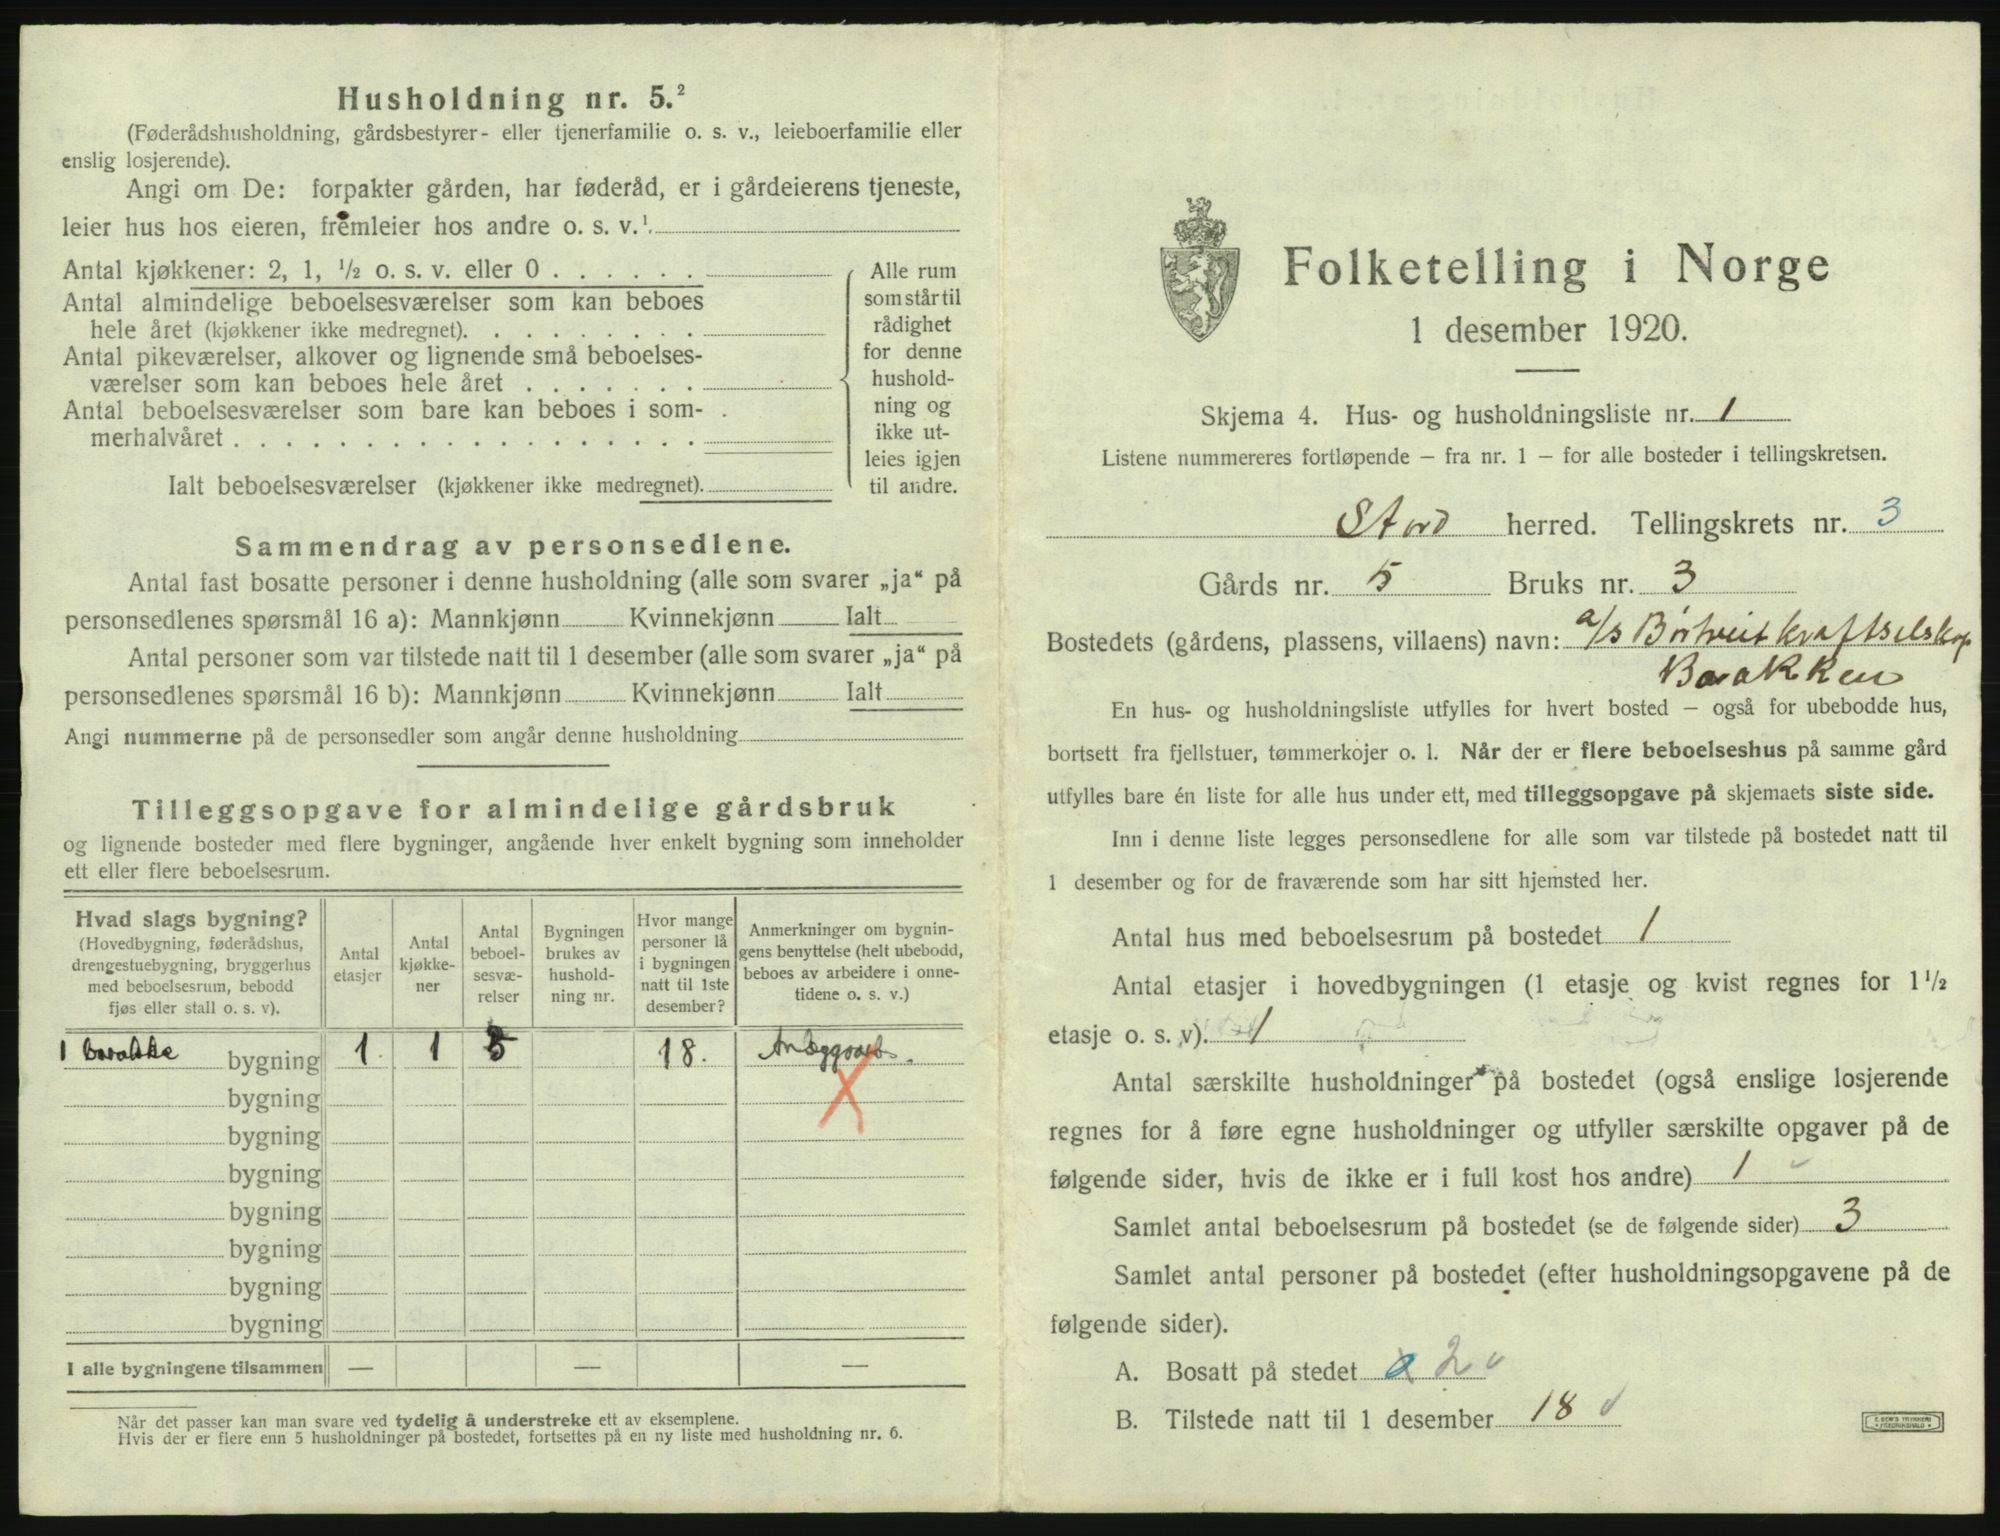 Husholdning nr. 5.²
(Føderådshusholdning, gårdsbestyrer- eller tjenerfamilie o. s. v., leieboerfamilie eller
enslig losjerende).
Angi om De: forpakter gården, har føderåd, er i gårdeierens tjeneste,
leier hus hos eieren, fremleier hos andre o. s. v.¹
Antal kjøkkener: 2, 1, ½ o. s. v. eller 0
Antal almindelige beboelsesværelser som kan beboes
hele året (kjøkkener ikke medregnet).
Antal pikeværelser, alkover og lignende små beboelses-
værelser som kan beboes hele året
Antal beboelsesværelser som bare kan beboes i som-
merhalvåret
Ialt beboelsesværelser (kjøkkener ikke medregnet).
Alle rum
som står til
rådighet
for denne
hushold-
ning og
ikke ut-
leies igjen
til andre.
Sammendrag av personsedlene.
Antal fast bosatte personer i denne husholdning (alle som svarer „ja“ på
personsedlenes spørsmål 16 a): Mannkjønn Kvinnekjønn Ialt
Antal personer som var tilstede natt til 1 desember (alle som svarer „ja“ på
personsedlenes spørsmål 16 b): Mannkjønn Kvinnekjønn Ialt
Angi nummerne på de personsedler som angår denne husholdning
Tilleggsopgave for almindelige gårdsbruk
og lignende bosteder med flere bygninger, angående hver enkelt bygning som inneholder
ett eller flere beboelsesrum.
Hvad slags bygning?
(Hovedbygning, føderådshus,
drengestuebygning, bryggerhus
med beboelsesrum, bebodd
fjøs eller stall o. s. v).
Antal
etasjer
Antal
kjøkke-
ner
Antal
beboel-
sesvæ-
relser
Bygningen
brukes av
hushold-
ning nr.
Hvor mange
personer lå
i bygningen
natt til 1ste
desember?
Anmerkninger om bygnin-
gens benyttelse (helt ubebodd,
beboes av arbeidere i onne-
tidene o. s. v.)
1 barakke bygning 1 1 3 18.
bygning
bygning
bygning
bygning
bygning
bygning
bygning
I alle bygningene tilsammen — — —
Når det passer kan man svare ved tydelig å understreke ett av eksemplene.
Hvis der er flere enn 5 husholdninger på bostedet, fortsettes på en ny liste med husholdning nr. 6.
Folketelling i Norge
1 desember 1920.
Skjema 4. Hus- og husholdningsliste nr. 1
Listene nummereres fortløpende – fra nr. 1 – for alle bosteder i tellingskretsen.
Stord herred. Tellingskrets nr. 3
Gårds nr. 5 Bruks nr. 3
Bostedets (gårdens, plassens, villaens) navn: a/s Børtveit kraftselskap
Barakken
En hus- og husholdningsliste utfylles for hvert bosted – også for ubebodde hus,
bortsett fra fjellstuer, tømmerkojer o. l. Når der er flere beboelseshus på samme gård
utfylles bare én liste for alle hus under ett, med tilleggsopgave på skjemaets siste side.
Inn i denne liste legges personsedlene for alle som var tilstede på bostedet natt til
1 desember og for de fraværende som har sitt hjemsted her.
Antal hus med beboelsesrum på bostedet 1
Antal etasjer i hovedbygningen (1 etasje og kvist regnes for 1 ½
etasje o. s. v). 1
Antal særskilte husholdninger på bostedet (også enslige losjerende
regnes for å føre egne husholdninger og utfyller særskilte opgaver på de
følgende sider, hvis de ikke er i full kost hos andre) 1
Samlet antal beboelsesrum på bostedet (se de følgende sider) 3
Samlet antal personer på bostedet (efter husholdningsopgavene på de
følgende sider).
A. Bosatt på stedet 2
B. Tilstede natt til 1 desember 18